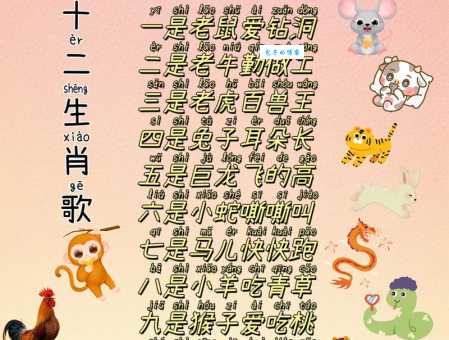 十二生肖歌
èr
shēng
xiào
gē
yī shì lǎo shǔ ài zuān dòng
一是老鼠爱钻洞
二是老牛勤做工
sān shì lǎo hǔ bǎi shòu wáng
三是老虎百兽王
sì shì tù zi ěr duǒ cháng
四是兔子耳朵长
wǔ shì jù lóng fēi de gāo
五是巨龙飞的高
liù shì xiǎo shé sī sī jiào
六是小蛇嘶嘶叫
qī shì mǎ ér kuài kuài pǎo
七是马儿快快跑
bā shì xiǎo yáng chī qīng cǎo
八是小羊吃菁草
jiǔ shì hóu zi ài chī táo
九是猴子爱吃桃